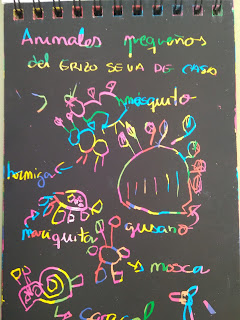 Animales pequeños
del ERIZO SE VA DE CASA
mosquito
hormiga
mariquita
gusano
mosca
caracol